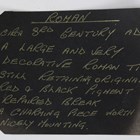 ROMAN
CIRCA 3RD CENTURY AD
A LARGE AND VERY
DECORATIVE ROMAN
STILL RETAINING ORIGINAL
RED & BLACK PIGMENT
REPAIRED BREAK
A CHARMING PIECE WORTH
NICELY MOUNTING.